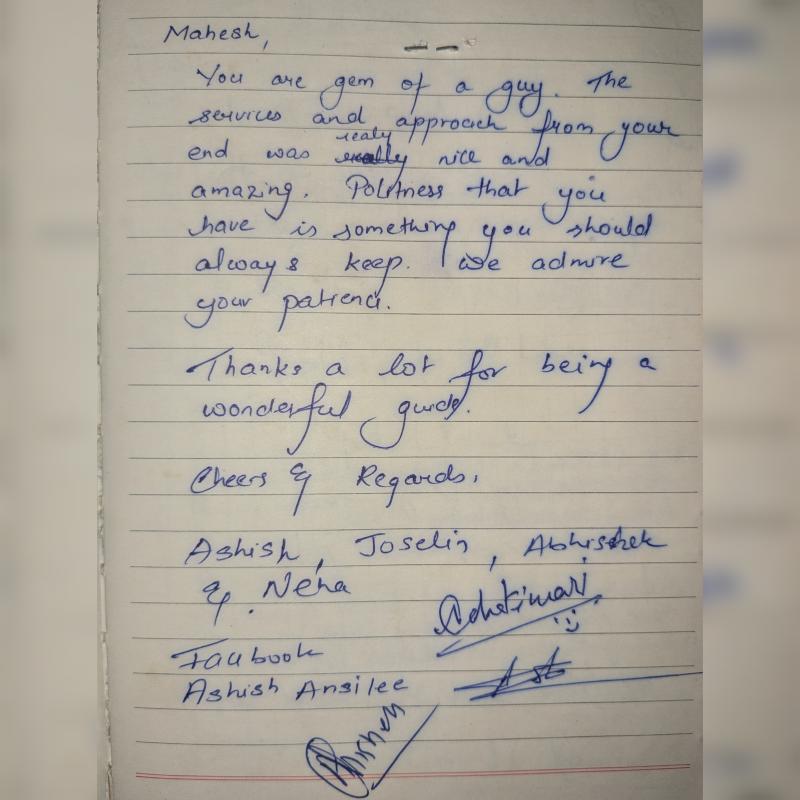 Mahesh,
You are gem of a guy. The
services and approach from your
end was realy nice and
amazing. Politness that you
have is something you should
always keep. We admire
your patience.
Thanks a lot for being a
wonderful guide.
Cheers & Regards,
Ashish, Joselin, Abhishek
& Neha
Facebook
Ashish Ansilee
Abhishek